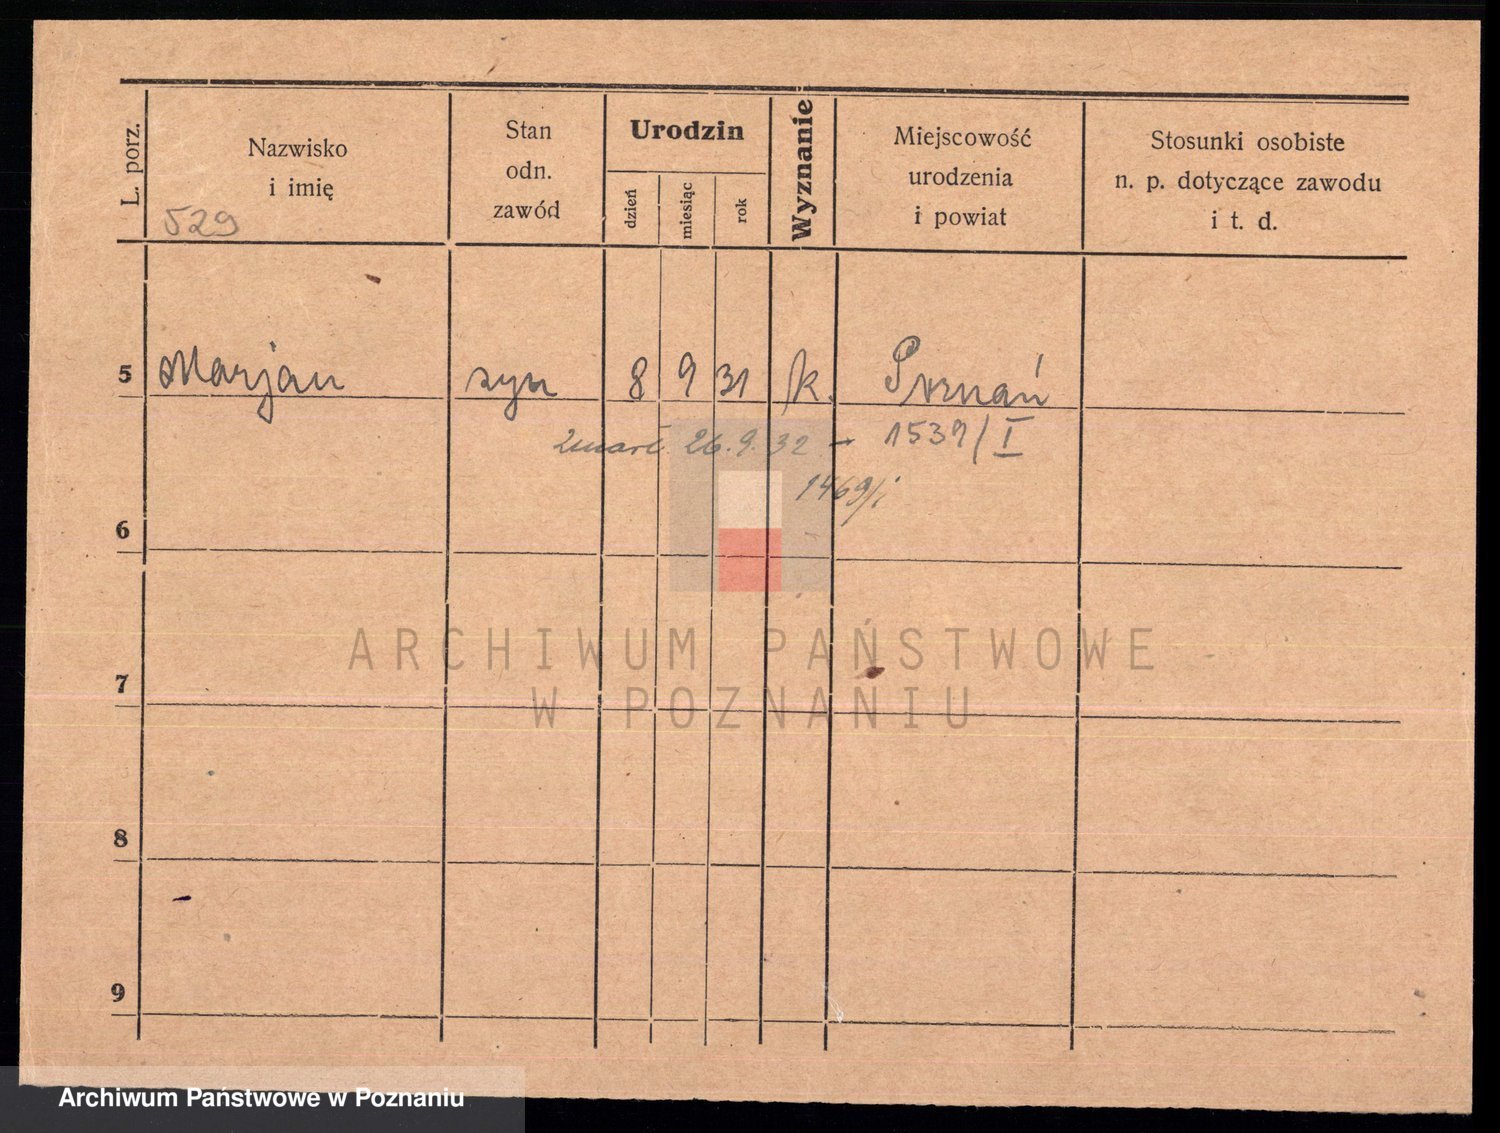 L. porz.
Nazwisko
i imię
Stan
odn.
zawód
Urodzin
dzień
miesiąc
rok
Wyznanie
Miejscowość
urodzenia
i powiat
Stosunki osobiste
n. p. dotyczące zawodu
i t. d.
529
5 Marjan syn 8 9 31 k. Poznań
zmarł 26.9.32 – 1539/I
1469/i
6
7
8
9
ARCHIWUM PAŃSTWOWE
W POZNANIU
Archiwum Państwowe w Poznaniu